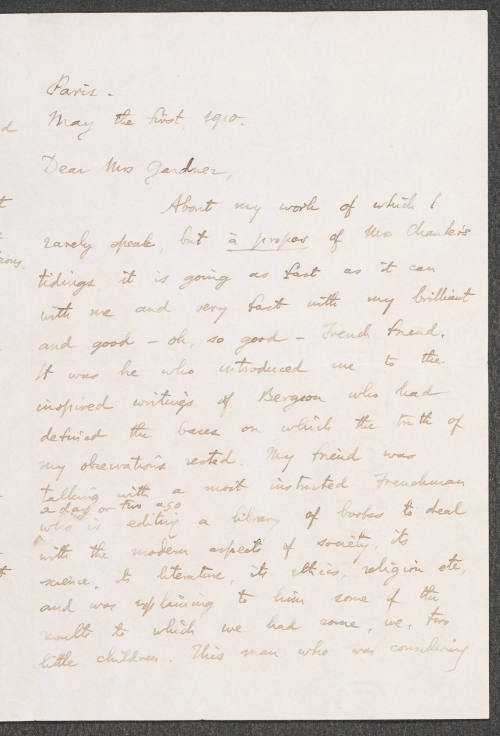 Paris -
May the first, 1910.
Dear Mrs Gardner,
About my work of which I
rarely speak, but à propos of Mrs Chanler's
tidings, it is going as fast as it can
with me and very fast with my brilliant
and good - oh, so good - French friend.
It was he who introduced me to the
inspired writings of Bergson who had
defined the bases on which the truth of
my observations rested. My friend was
talking with a most instructed Frenchman
a day or two ago
who is editing a library of books to deal
with the modern aspects of society, its
science, its literature, its ethics, religion etc,
and was explaining to him some of the
results to which we had come, we, two
little children. This man who was considering